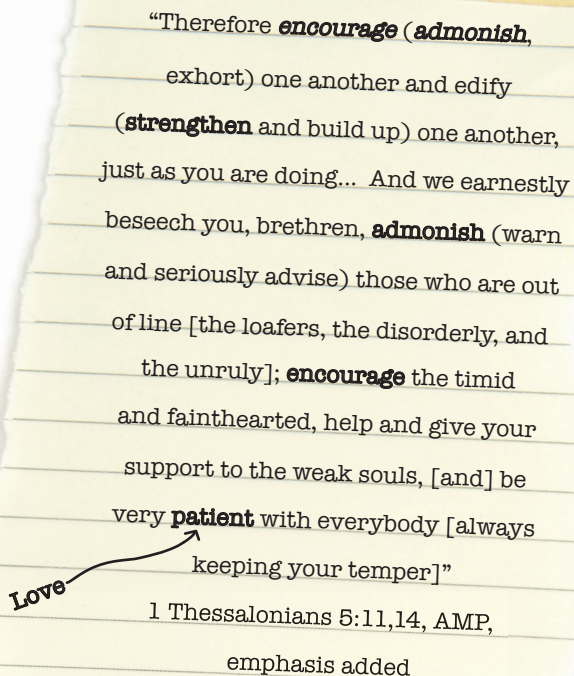 “Therefore encourage (admonish,
exhort) one another and edify
(strengthen and build up) one another,
just as you are doing... And we earnestly
beseech you, brethren, admonish (warn
and seriously advise) those who are out
of line [the loafers, the disorderly, and
the unruly]; encourage the timid
and fainthearted, help and give your
support to the weak souls, [and] be
very patient with everybody [always
keeping your temper]”
Love
1 Thessalonians 5:11,14, AMP,
emphasis added